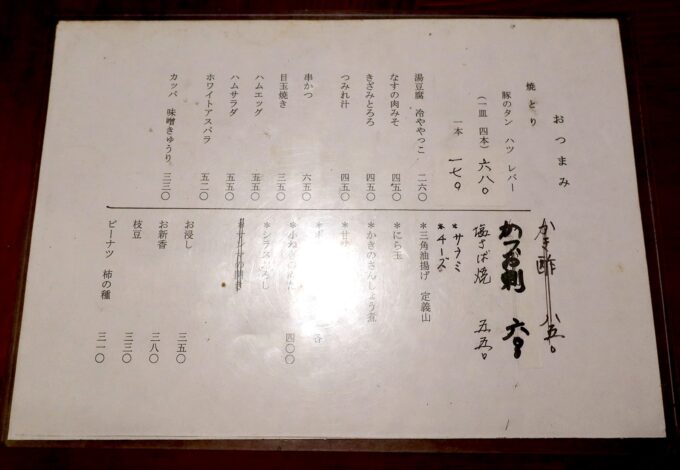 おつまみ
焼とり
豚のタン ハツ レバー
(一皿 四本) 六八〇
一本 一七〇
湯豆腐 冷ややっこ 二六〇
なすの肉みそ 四五〇
きざみとろろ 四五〇
つみれ汁 四五〇
串かつ 六五〇
目玉焼き 三五〇
ハムエッグ 五五〇
ハムサラダ 五五〇
ホワイトアスパラ 五二〇
カッパ 味噌きゅうり 三三〇
かき酢 八五〇
かつお刺 六〇
塩さば焼 五五〇
*サラミ
*チーズ
*三角油揚げ 定義山
*にら玉
*かきのさんしょう煮
四〇〇
お浸し 三五〇
お新香 三八〇
枝豆 三三〇
ピーナツ 柿の種 三一〇